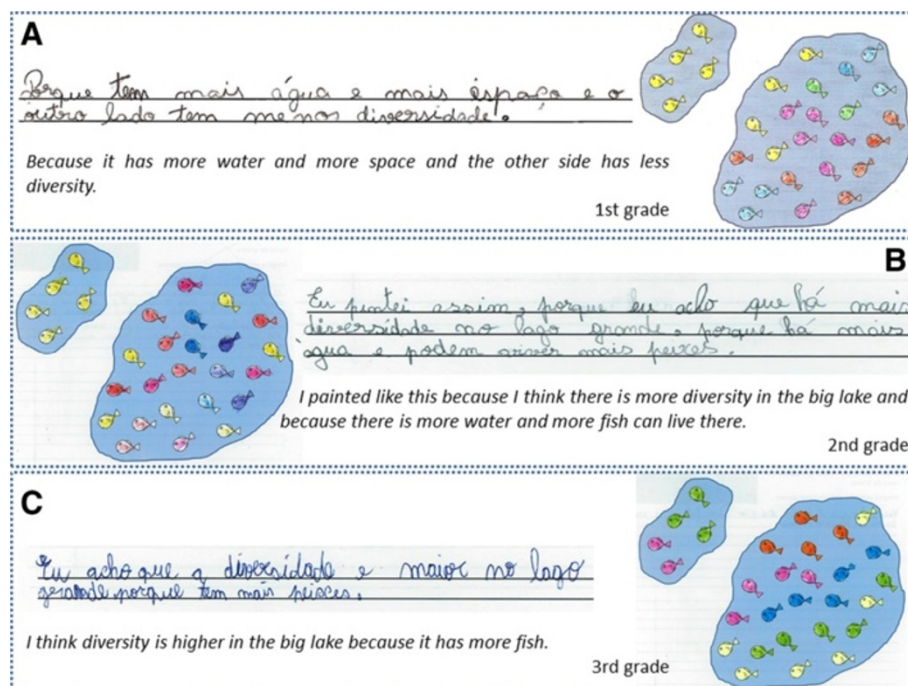 A
Porque tem mais água e mais espaço e o
outro lado tem menos diversidade.
Because it has more water and more space and the other side has less
diversity.
1st grade
B
Eu pintei assim, porque eu acho que há mais
diversidade no lago grande, porque há mais
água e podem viver mais peixes.
I painted like this because I think there is more diversity in the big lake and
because there is more water and more fish can live there.
2nd grade
C
Eu acho que a diversidade e maior no lago
grande porque tem mais peisces.
I think diversity is higher in the big lake because it has more fish.
3rd grade